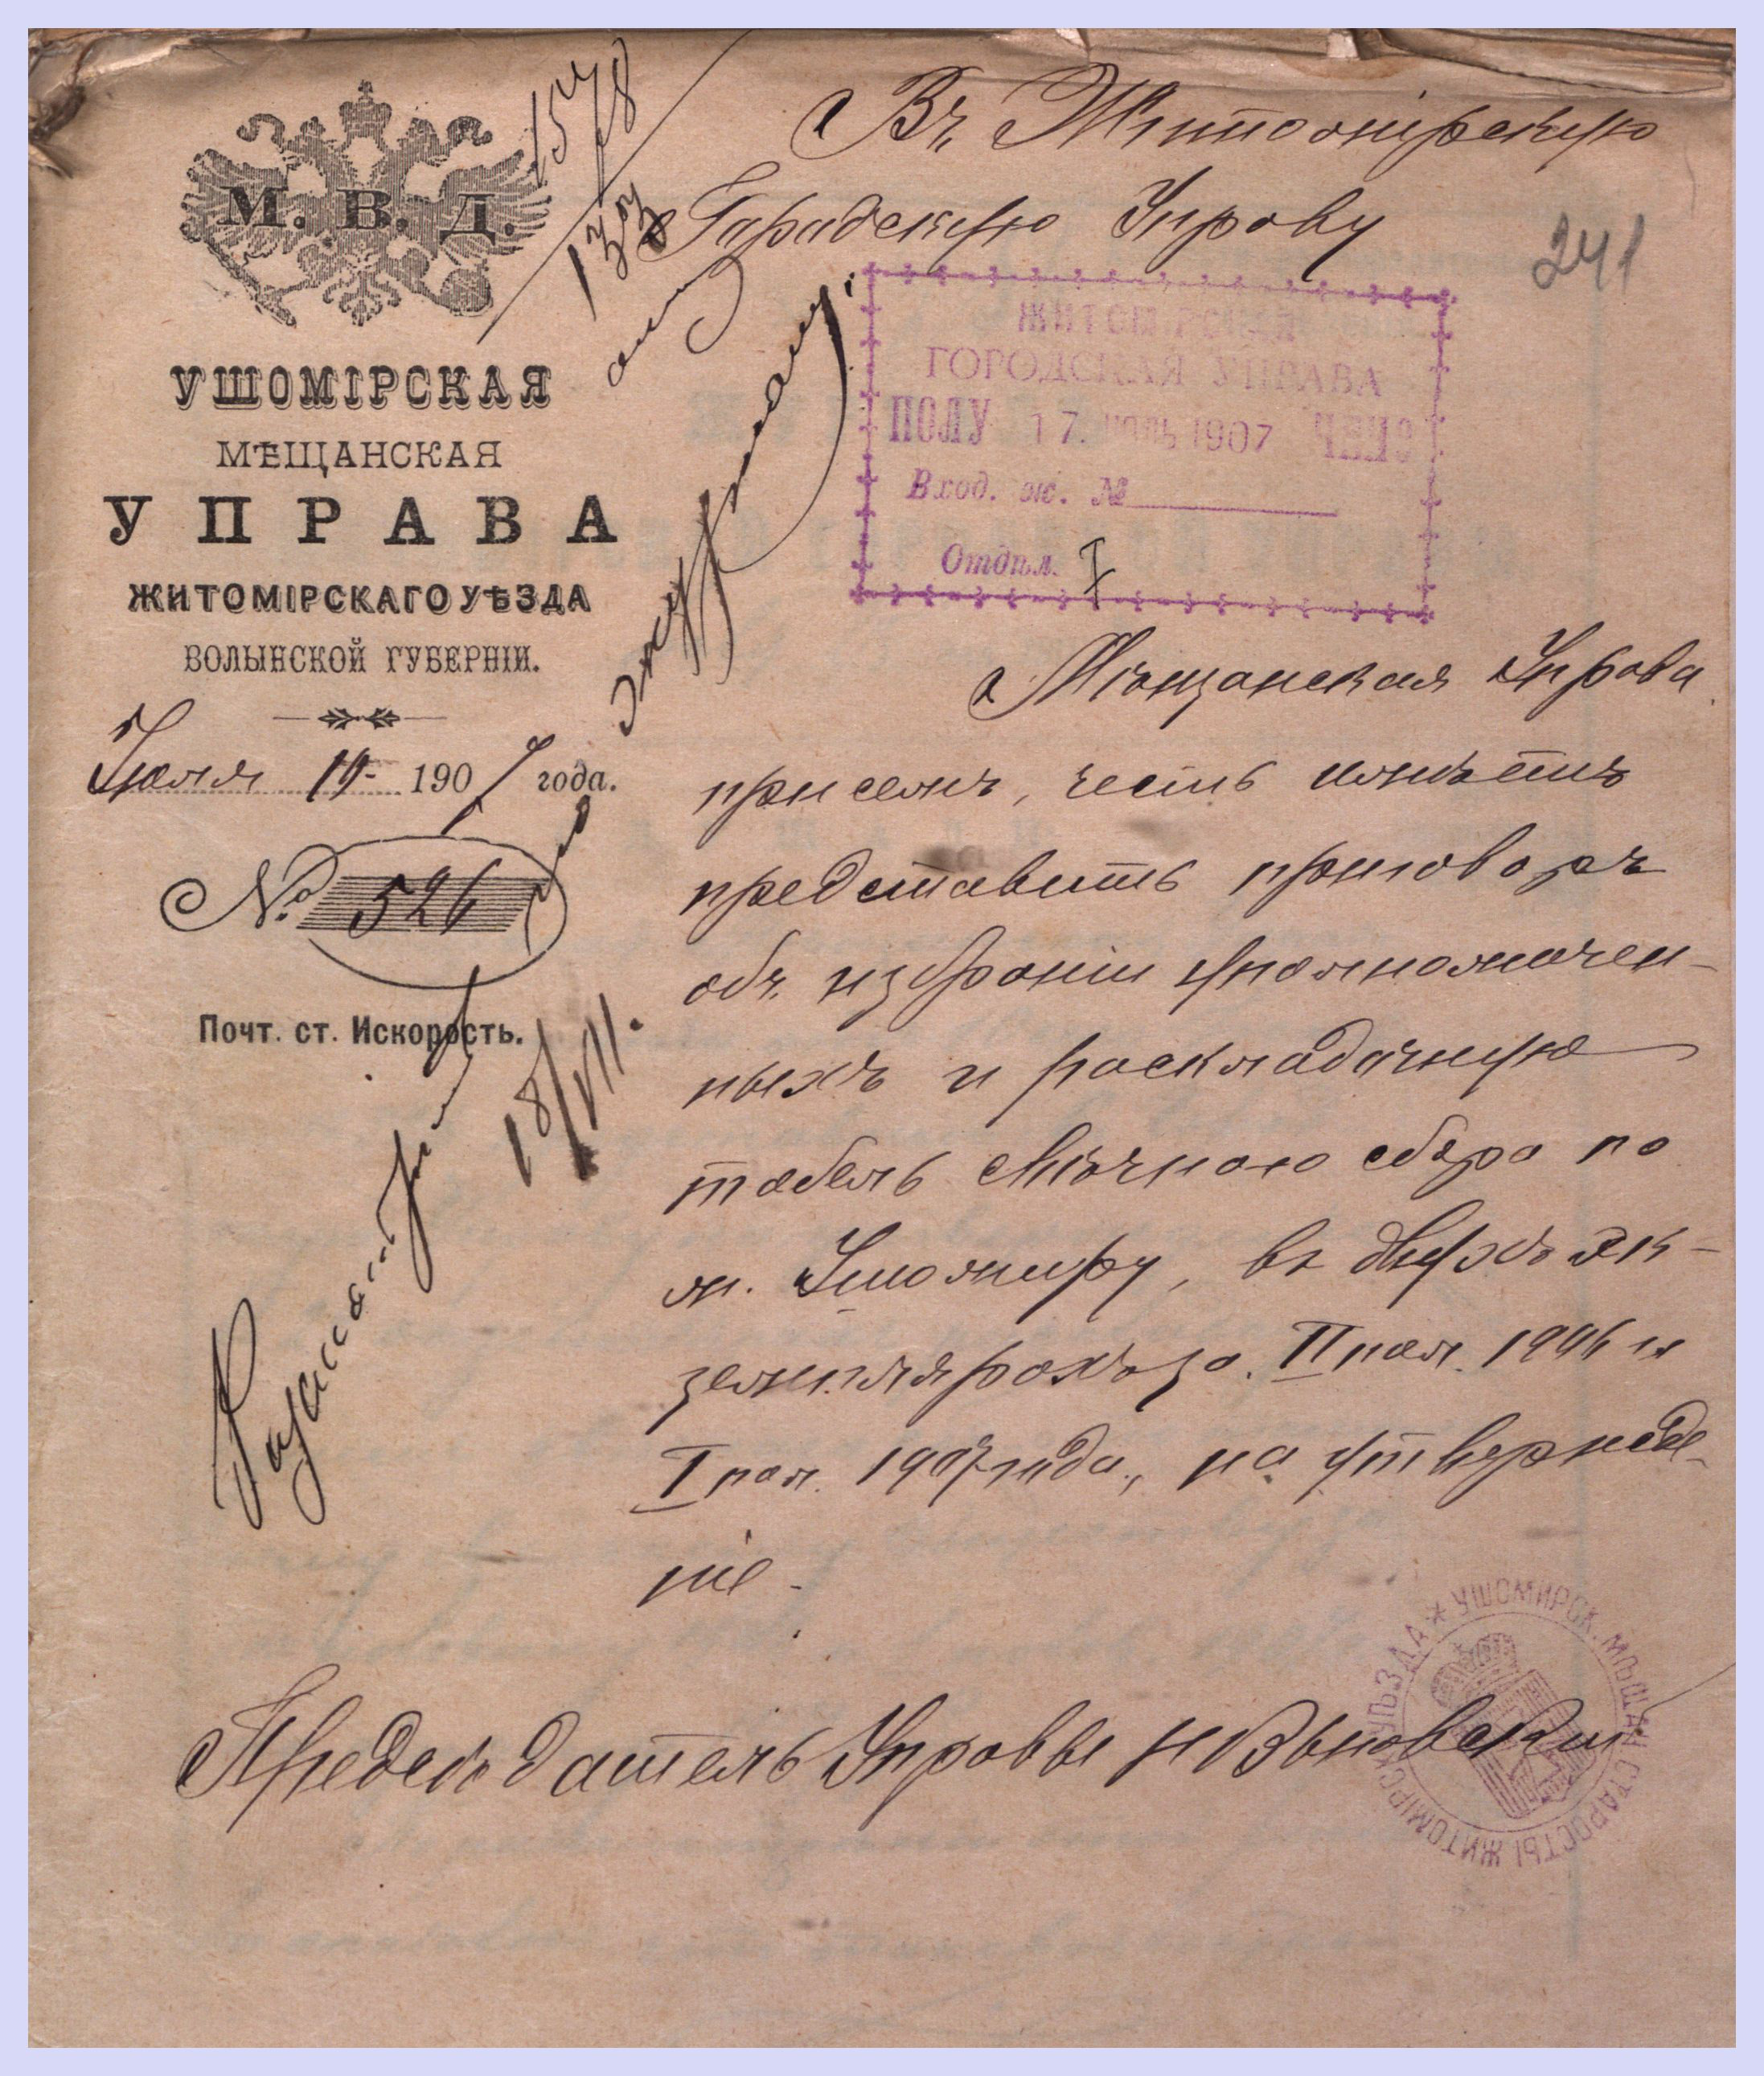 М. В. Д.
УШОМІРСКАЯ
МѢЩАНСКАЯ
УПРАВА
ЖИТОМІРСКАГО УѢЗДА
ВОЛЫНСКОЙ ГУБЕРНІИ.
Іюля 190 7 года.
№ 526
Почт. ст. Искорость.
18/VII.
Въ Житомірскую
Городскую Управу
241
ЖИТОМІРСКАЯ
ГОРОДСКАЯ УПРАВА
ПОЛУ 17. ІЮЛЬ 1907 ЧЕНО
Вход. ж. №
Отдѣл. I
Мѣщанская Управа
при семъ, честь имѣетъ
представить приговоръ
объ избраніи уполномочен-
ныхъ и раскладочную
табель смѣтнаго сбора по
м. Ушомиру, въ двухъ эк-
земплярахъ за II пол. 1906 и
I пол. 1907 года, на утвержде-
ніе.
Предсѣдатель Управы
УШОМИРСК. МѢЩАН. СТАРОСТЫ ЖИТОМІРСК. УѢЗДА